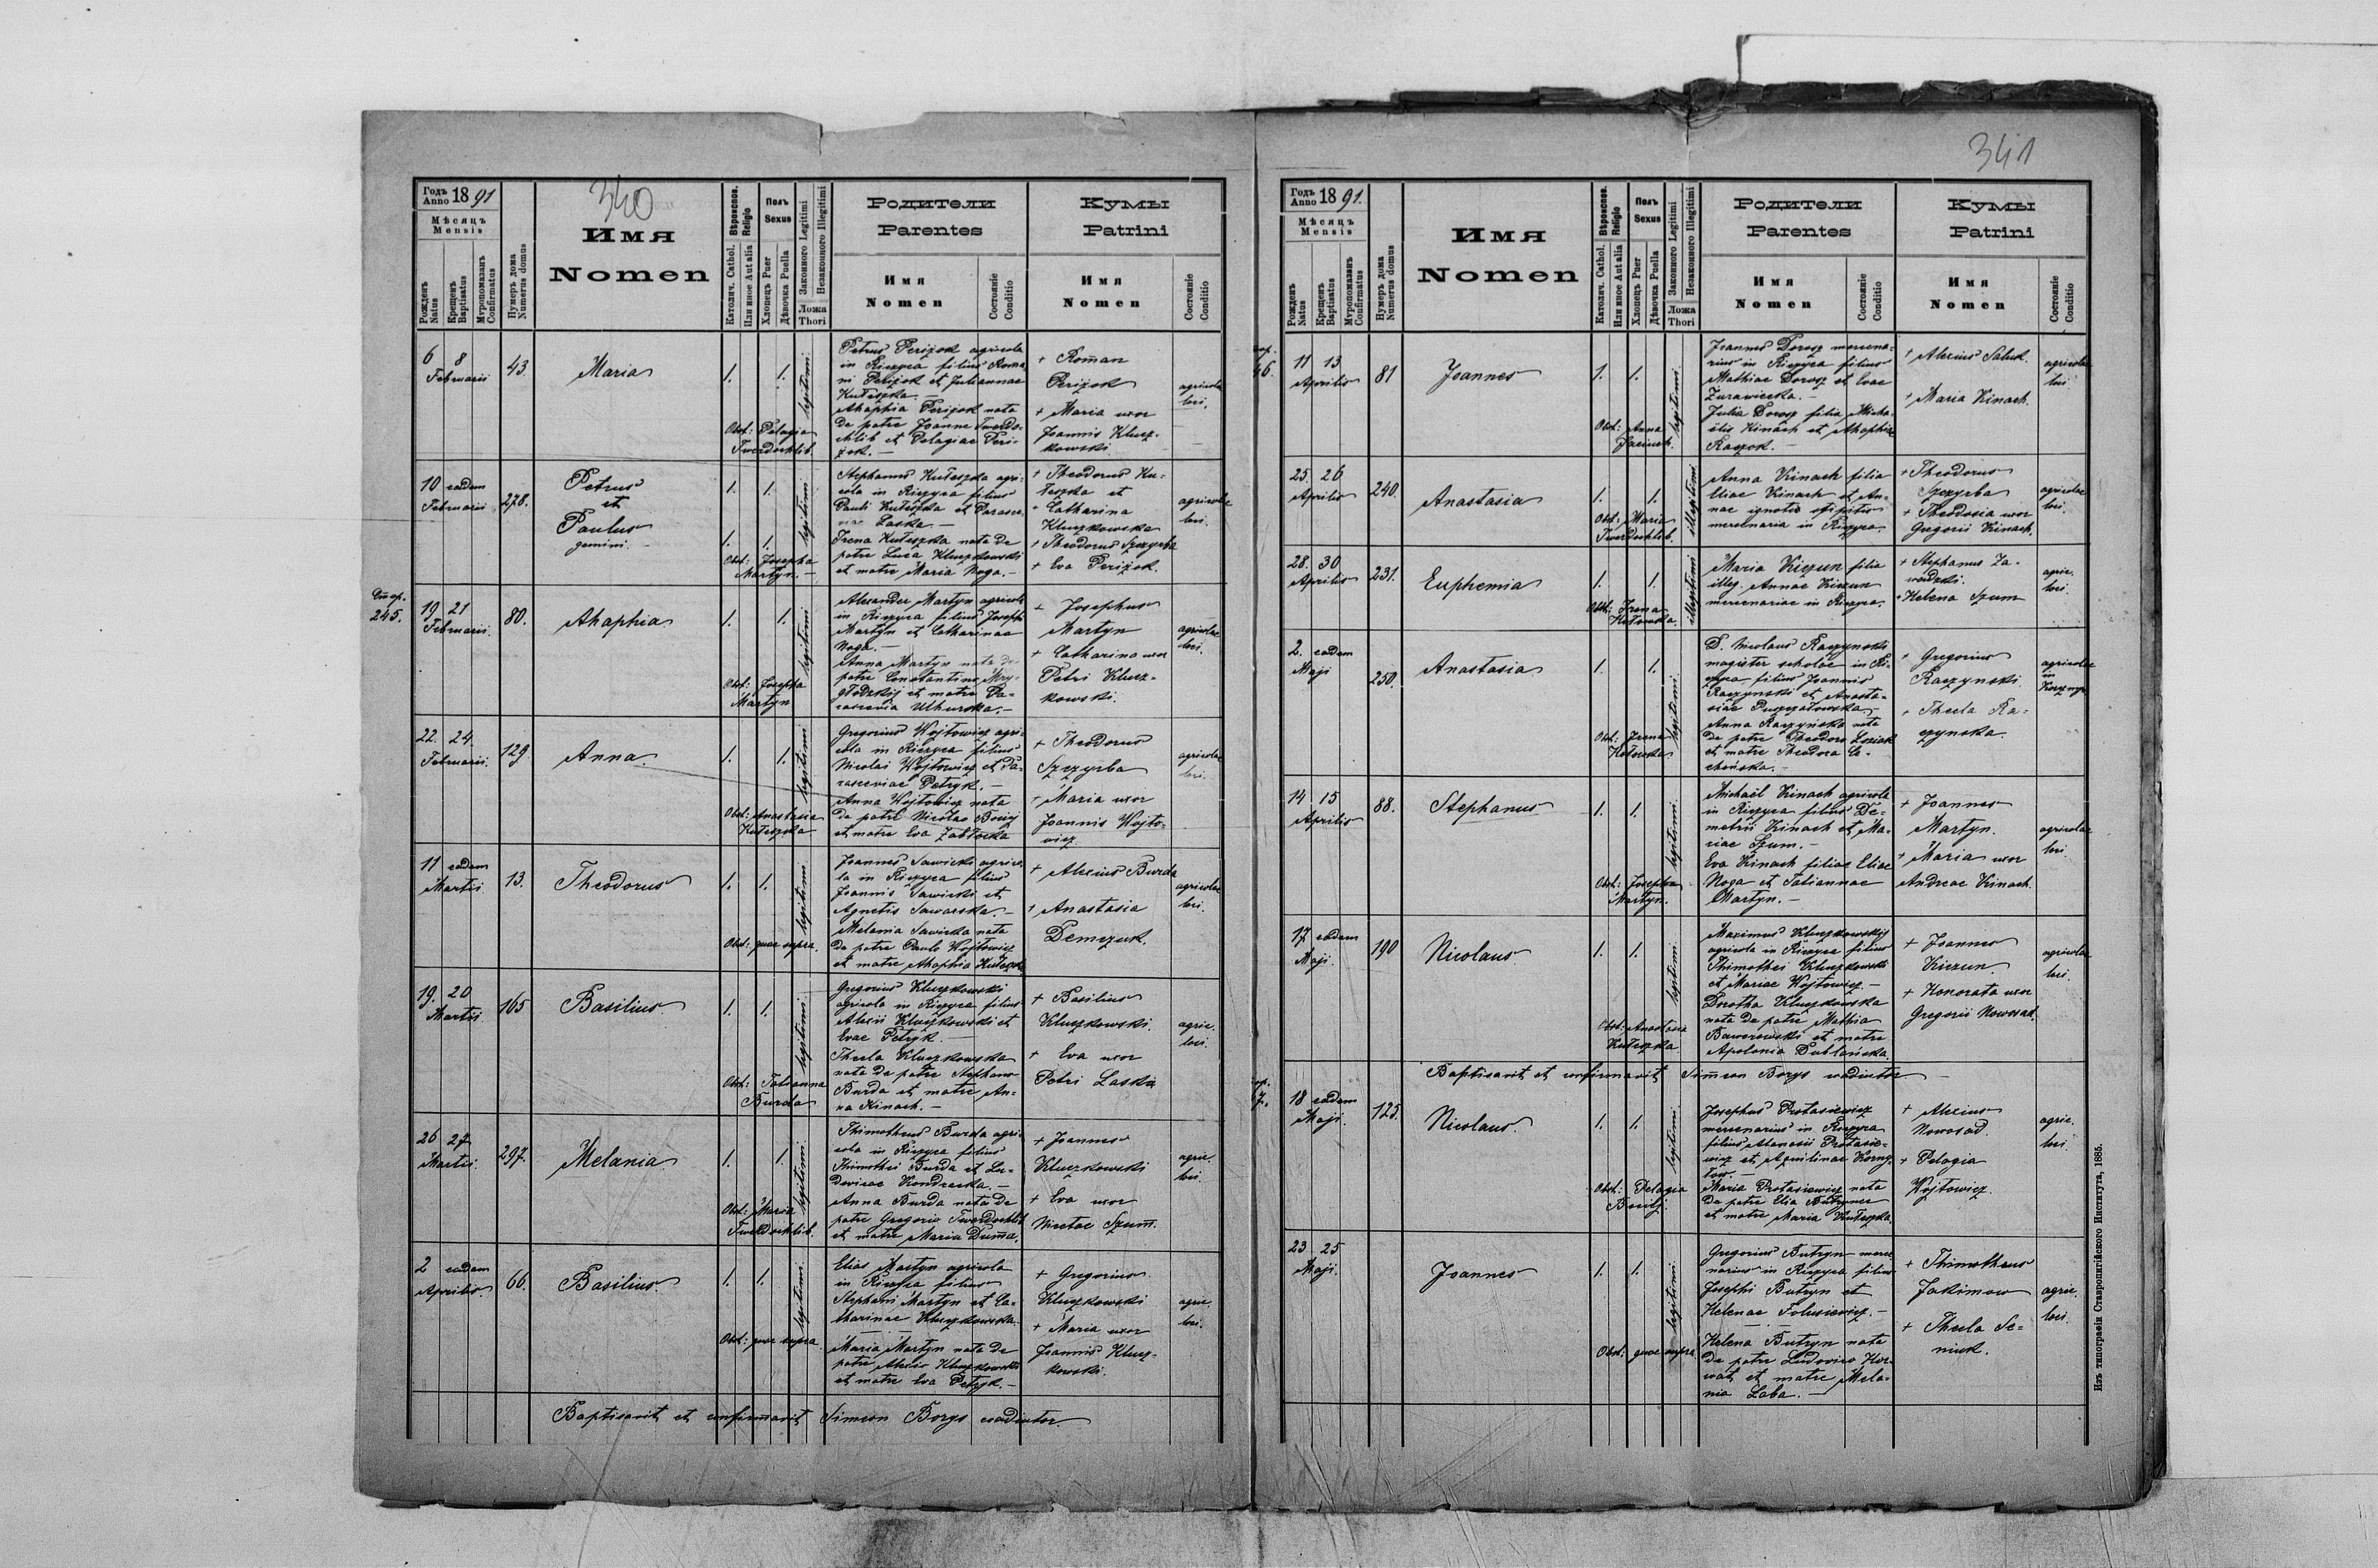 340
Годъ Anno 1891
Мѣсяцъ Mensis
Рожденъ Natus
Крещенъ Baptisatus
Мѵропомазанъ Confirmatus
Нумеръ дома Numerus domus
Имя
Nomen
Вѣроиспов. Religio
Католич. Cathol.
Или иное Aut alia
Полъ Sexus
Хлопецъ Puer
Дѣвочка Puella
Законного Legitimi
Незаконного Illegitimi
Ложа Thori
Родители
Parentes
Имя Nomen
Состояніе Conditio
Кумы
Patrini
Имя Nomen
Состояніе Conditio
6 8 Februarii 43. Maria 1. 1. legitimi
Obst: Pelagia
Twerdochlib.
Petrus Perizok agricola
in Rieczyca filius Roma
ni Perizok et Juliannae
Kuteszka. —
Ahaphia Perizok nata
de patre Joanne Twerdo-
chlib et Pelagiae Peri-
zok. —
+ Roman
Perizok
+ Maria uxor
Joannis Klucz-
kowski.
agricolae
loci.
10 eadem Februarii 278. Petrus
et
Paulus
gemini. —
1. 1. legitimi
1. 1.
Obst: Josepha
Martyn. —
Stephanus Kuteszka agri-
cola in Rieczyca filius
Pauli Kuteszka et Parasce-
viae Laska. —
Irena Kuteszka nata de
patre Luca Kluczkowski
et matre Maria Noga. —
+ Theodorus Ku-
teszka et
+ Catharina
Kluczkowska
+ Theodorus Szczyrba
+ Eva Perizok.
agricolae
loci.
245.
19 21 Februarii. 80. Ahaphia 1. 1. legitimi
Obst: Josepha
Martyn
Alexander Martyn agricola
in Rieczyca filius Josephi
Martyn et Catharinae
Noga. —
Anna Martyn nata de
patre Constantino Mry-
głodzkij et matre Pa-
rascevia Uhurska. —
+ Josephus
Martyn
+ Catharina uxor
Petri Klucz-
kowski.
agricolae
loci.
22. 24. Februarii. 129 Anna 1. 1. legitimi
Obst: Anastasia
Kuteszka
Gregorius Wojtowicz agri-
cola in Rieczyca filius
Nicolai Wojtowicz et Pa-
rasceviae Petryk. —
Anna Wojtowicz nata
de patre Nicolao Bouij
et matre Eva Zabłocka
+ Theodorus
Szczyrba
+ Maria uxor
Joannis Wojto-
wicz
agricolae
loci.
11 eadem Martii 13. Theodorus 1. 1. legitimi
Obst: quae supra.
Joannes Sawicki agrico-
la in Rieczyca filius
Joannis Sawicki et
Agnetis Sawarska. —
Melania Sawicka nata
de patre Paulo Wojtowicz
et matre Ahaphia Kuteszka
+ Alexius Burda
+ Anastasia
Demczuk.
agricolae
loci.
19. 20 Martii 165 Basilius 1. 1. legitimi
Obst: Tatianna
Burda
Gregorius Kluczkowski
agricola in Rieczyca filius
Alexii Kluczkowski et
Evae Petryk. —
Thecla Kluczkowska
nata de patre Stephano
Burda et matre An-
na Kinach. —
+ Basilius
Kluczkowski.
+ Eva uxor
Petri Laska
agric.
loci.
26 27 Martii. 297. Melania 1. 1. legitimi.
Obst: Maria
Twerdochlib.
Thimotheus Burda agri-
cola in Rieczyca filius
Thimothei Burda et Lu-
dovicae Kondracka. —
Anna Burda nata de
patre Gregorio Twerdochlib
et matre Maria Duma.
+ Joannes
Kluczkowski
+ Eva uxor
Nicetae Szum.
agric.
loci.
2 eadem Aprilis. 66. Basilius 1. 1. legitimi.
Obst: quae supra
Elias Martyn agricola
in Rieczyca filius
Stephani Martyn et Ca-
tharinae Kluczkowska.
Maria Martyn nata de
patre Alexio Kluczkowski
et matre Eva Petryk. —
+ Gregorius
Kluczkowski
+ Maria uxor
Joannis Klucz-
kowski.
agric.
loci.
Baptisavit et confirmavit Simeon Borys coadiutor.
341
Годъ Anno 1891.
Мѣсяцъ Mensis
Рожденъ Natus
Крещенъ Baptisatus
Мѵропомазанъ Confirmatus
Нумеръ дома Numerus domus
Имя
Nomen
Вѣроиспов. Religio
Католич. Cathol.
Или иное Aut alia
Полъ Sexus
Хлопецъ Puer
Дѣвочка Puella
Законного Legitimi
Незаконного Illegitimi
Ложа Thori
Родители
Parentes
Имя Nomen
Состояніе Conditio
Кумы
Patrini
Имя Nomen
Состояніе Conditio
11 13 Aprilis 81 Joannes 1. 1. legitimi.
Obst: Anna
Jacinech.
Joannes Dorosz mercena-
rius in Rieczyca filius
Mathiae Dorosz et Evae
Zurawiecka. —
Julia Dorosz filia Micha-
elis Kinach et Ahaphiae
Raczok. —
+ Alexius Saluk.
+ Maria Kinach.
agricolae
loci.
25 26 Aprilis 240. Anastasia 1. 1. illegitimi
Obst: Maria
Twerdochlib.
Anna Kinach filia
Eliae Kinach et An-
nae ignotae stipitis
mercenaria in Rieczyca.
+ Theodorus
Szczyrba
+ Theodosia uxor
Gregorii Kinach.
agricolae
loci.
28. 30 Aprilis 231. Euphemia 1. 1. illegitimi
Obst: Irena
Kotowska.
Maria Kiczun filia
illeg. Annae Kiczun
mercenariae in Rieczyca.
+ Stephanus Za-
wadzki.
+ Helena Szum
agric.
loci.
2. eadem Maji 250. Anastasia 1. 1. legitimi.
Obst: Irena
Kotowska
D. Nicolaus Raczynski
magister scholae in Ri-
czyca filius Joannis
Raczynski et Anasta-
siae Puszczałowska. —
Anna Raczynska nata
de patre Theodoro Losiak
et matre Theodora Le-
chońska. —
+ Gregorius
Raczynski
+ Thecla Ra-
czynska.
agricolae
in
14 15 Aprilis 88. Stephanus 1. 1. legitimi.
Obst: Josepha
Martyn.
Michael Kinach agricola
in Rieczyca filius De-
metrii Kinach et Ma-
riae Szum. —
Eva Kinach filiae Eliae
Noga et Tatiannae
Martyn. —
+ Joannes
Martyn.
+ Maria uxor
Andreae Kinach.
agricolae
loci.
17 eadem Maji. 190 Nicolaus 1. 1. legitimi.
Obst: Anastasia
Kuteszka.
Maximus Kluczkowskij
agricola in Rieczyca filius
Thimothei Kluczkowski
et Mariae Wojtowicz. —
Dorotha Kluczkowska
nata de patre Mathia
Baworowski et matre
Apolonia Dublańska.
+ Joannes
Kiczun.
+ Honorata uxor
Gregorii Nowosad.
agricolae
loci.
Baptisavit et confirmavit Simeon Borys coadiutor —
18 eadem Maji. 125. Nicolaus. 1. 1. legitimi.
Obst: Pelagia
Bouij.
Josephus Protasiewicz
mercenarius in Rieczyca
filius Atanasii Protasie-
wicz et Aquilinae Korny-
łow. —
Maria Protasiewicz nata
de patre Elia Butryner
et matre Maria Kuteszka.
+ Alexius
Nowosad.
+ Pelagia
Wojtowicz.
agric.
loci.
23 25 Maji. Joannes 1. 1. legitimi.
Obst: quae supra
Gregorius Butryn merce
narius in Rieczyca filius
Josephi Butryn et
Helenae Folusiewicz. —
Helena Butryn nata
de patre Ludovico Hor-
wat et matre Mela-
nia Laba. —
+ Thimotheus
Jakimow
+ Thecla Se-
niuk.
agric.
loci.
Изъ типографіи Ставропигійского Института, 1885.